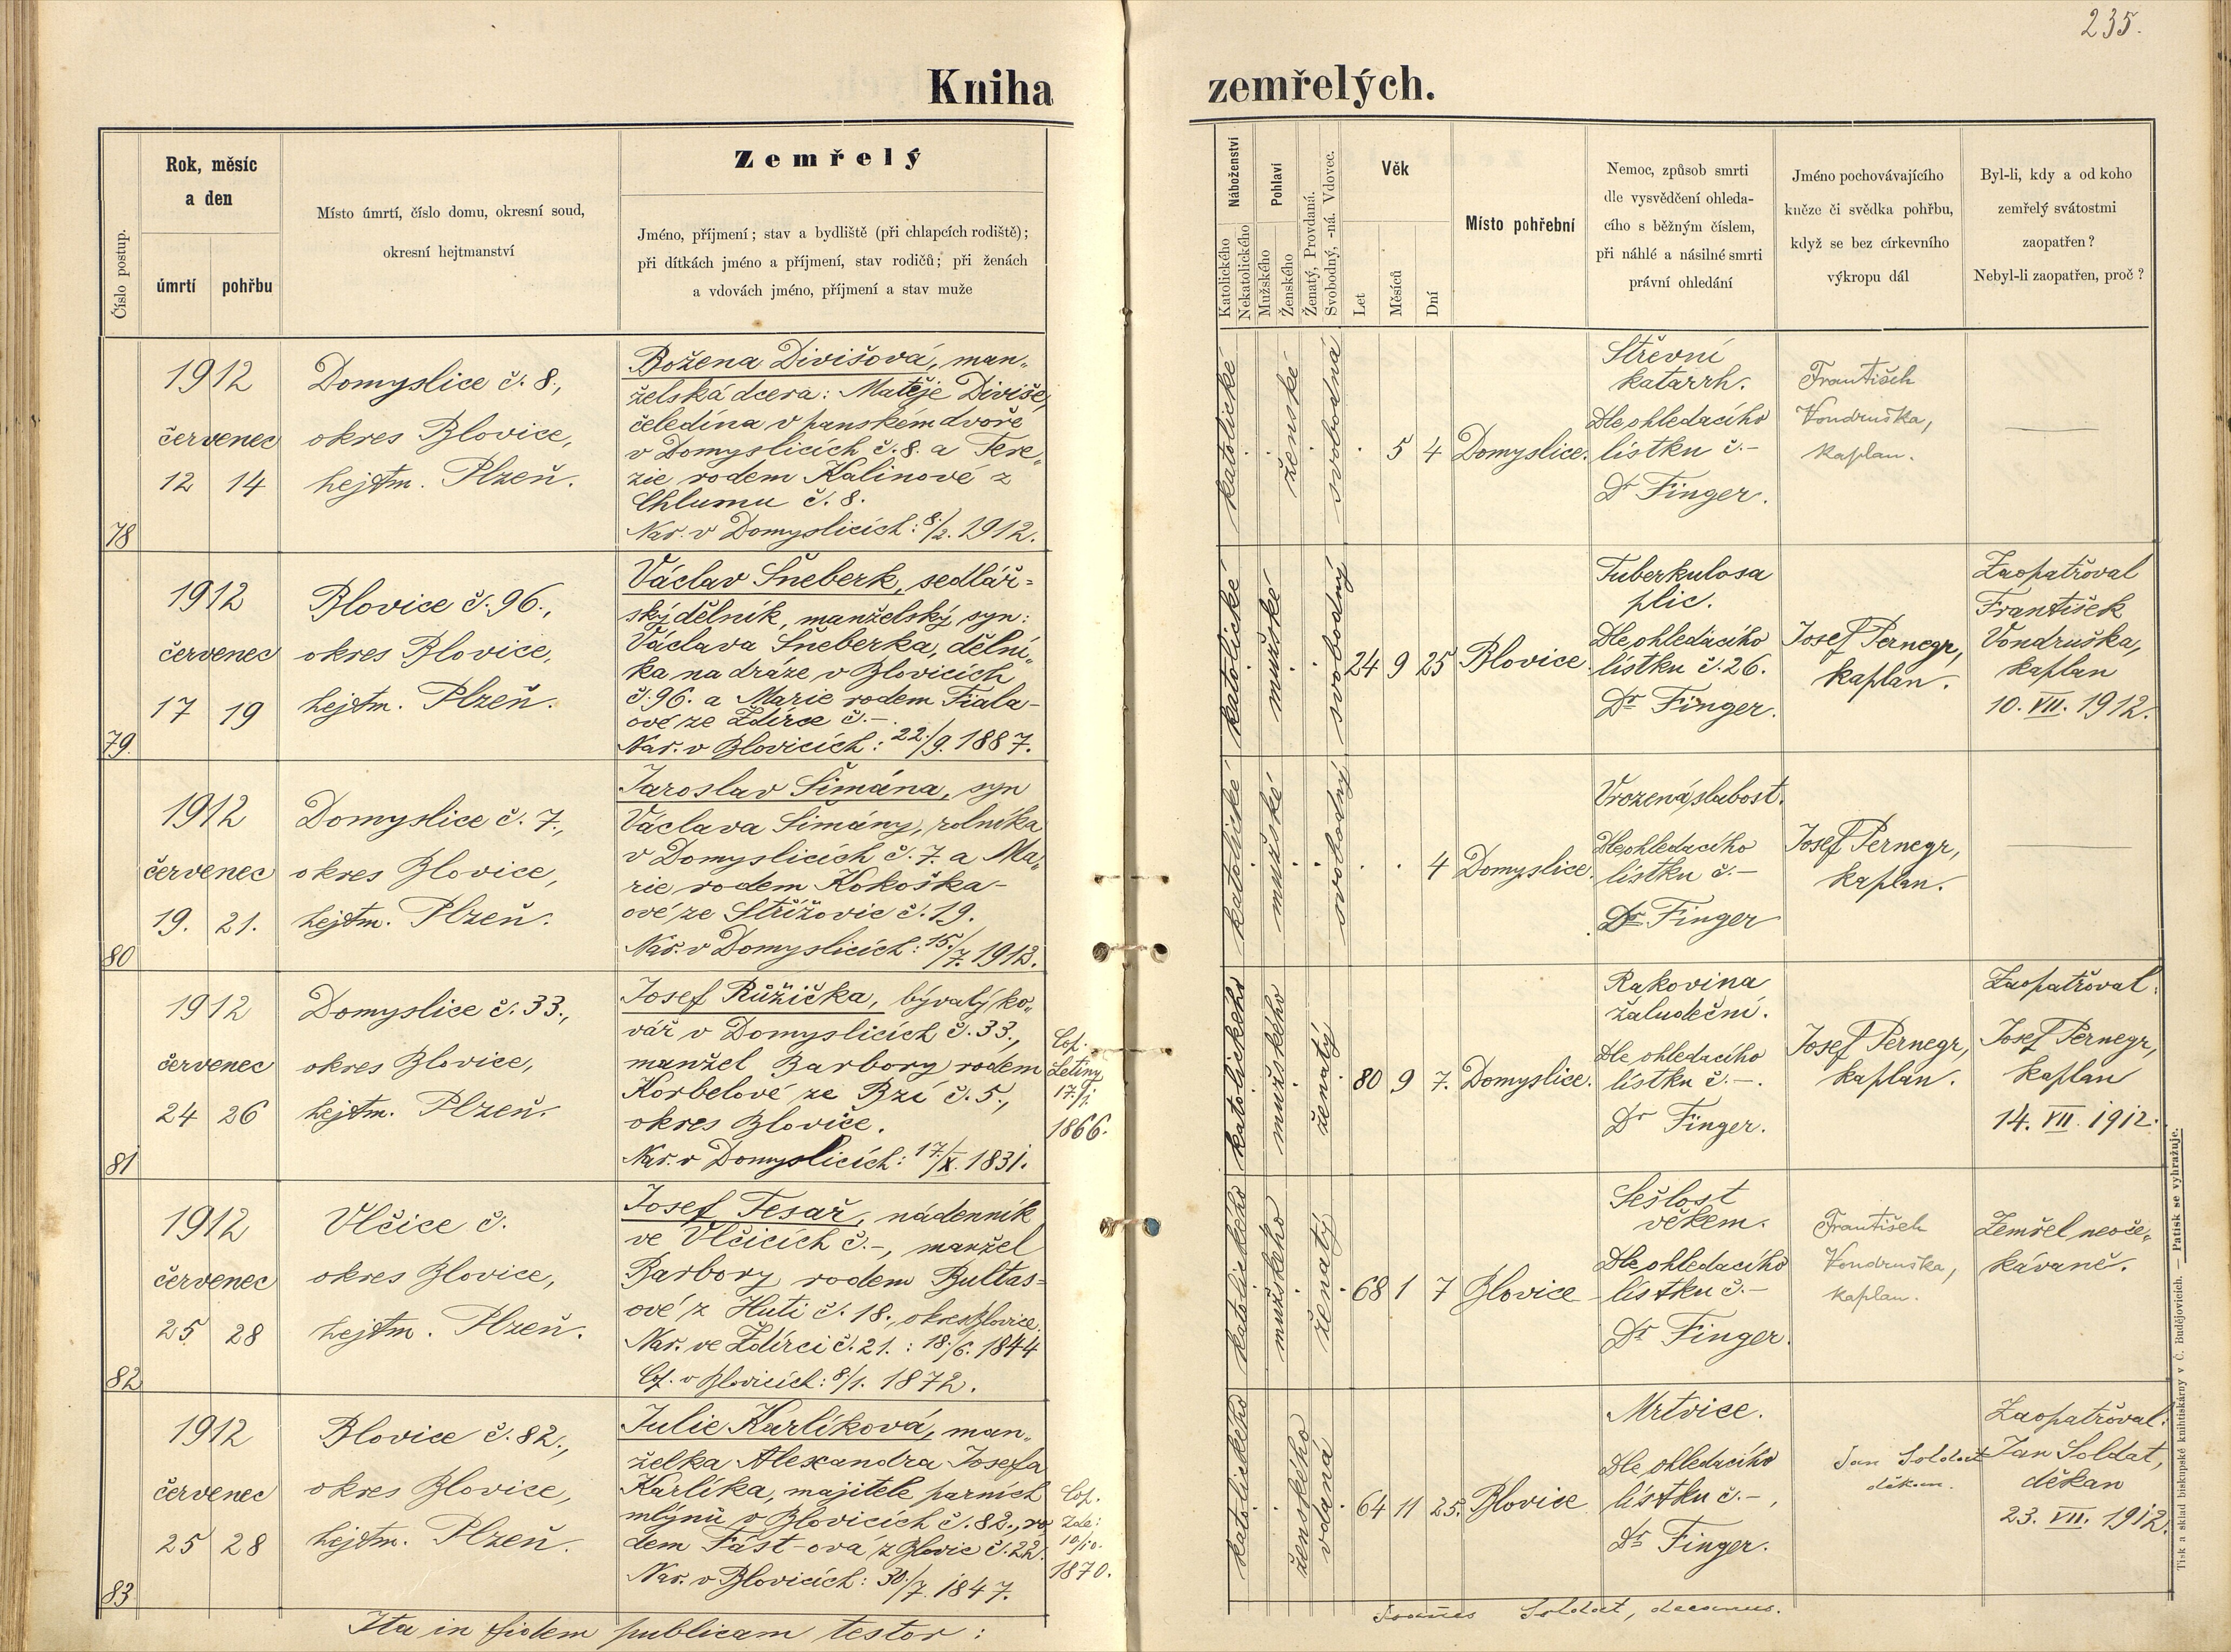 235.
Kniha zemřelých.
Číslo postup.
Rok, měsíc
a den
úmrtí
pohřbu
Místo úmrtí, číslo domu, okresní soud,
okresní hejtmanství
Zemřelý
Jméno, příjmení; stav a bydliště (při chlapcích rodiště);
při dítkách jméno a příjmení, stav rodičů; při ženách
a vdovách jméno, příjmení a stav muže
Náboženství
Katolického
Nekatolického
Pohlaví
Mužského
Ženského
Ženatý, Provdaná.
Svobodný, -ná. Vdovec.
Věk
Let
Měsíců
Dní
Místo pohřební
Nemoc, způsob smrti
dle vysvědčení ohleda-
cího s běžným číslem,
při náhlé a násilné smrti
právní ohledání
Jméno pochovávajícího
kněze či svědka pohřbu,
když se bez církevního
výkropu dál
Byl-li, kdy a od koho
zemřelý svátostmi
zaopatřen?
Nebyl-li zaopatřen, proč?
78
1912
červenec
12 14
Domyslice č. 8.,
okres Blovice,
hejtm. Plzeň.
Božena Divišová, man-
želská dcera: Matěje Diviše,
čeledína v panském dvoře
v Domyslicích č. 8. a Tere-
zie rodem Kalinové z
Chlumu č. 8.
Nar. v Domyslicích: 8./2. 1912.
katolické
ženské
svobodná
. 5 4
Domyslice.
Střevní
katarrh.
Dle ohledacího
lístku č.-
Dr Finger.
František
Vondruška,
kaplan.
79.
1912
červenec
17 19
Blovice č. 96.,
okres Blovice,
hejtm. Plzeň.
Václav Šneberk, sedlář-
ský dělník, manželský syn:
Václava Šneberka, dělní-
ka na dráze v Blovicích
č. 96. a Marie rodem Fiala-
ové ze Ždírce č. -.
Nar. v Blovicích: 22./9. 1887.
katolické
mužské
svobodný
24 9 25
Blovice.
Tuberkulosa
plic.
Dle ohledacího
lístku č. 26.
Dr Finger.
Josef Pernegr,
kaplan.
Zaopatřoval
František
Vondruška,
kaplan
10. VII. 1912.
80
1912
červenec
19. 21.
Domyslice č. 7.,
okres Blovice,
hejtm. Plzeň.
Jaroslav Šimána, syn
Václava Šimány, rolníka
v Domyslicích č. 7. a Ma-
rie rodem Kokoška-
ové ze Střížovic č. 19.
Nar. v Domyslicích: 15./7. 1912.
katolické
mužské
svobodný
. . 4
Domyslice.
Vrozená slabost.
Dle ohledacího
lístku č.-
Dr Finger
Josef Pernegr,
kaplan.
81
1912
červenec
24 26
Domyslice č. 33.,
okres Blovice,
hejtm. Plzeň.
Josef Růžička, bývalý ko-
vář v Domyslicích č. 33.,
manžel Barbory rodem
Korbelové ze Bzí č. 5.,
okres Blovice.
Nar. v Domyslicích: 17./X. 1831.
Cop.
Letiny
17./1.
1866.
katolického
mužského
ženatý
80 9 7.
Domyslice.
Rakovina
žaludeční.
Dle ohledacího
lístku č. -.
Dr Finger.
Josef Pernegr,
kaplan.
Zaopatřoval:
Josef Pernegr,
kaplan
14. VII. 1912.
82
1912
červenec
25 28
Vlčice č.
okres Blovice,
hejtm. Plzeň.
Josef Tesař, nádenník
ve Vlčicích č. -, manžel
Barbory rodem Bultas-
ové z Huti č. 18., okres Blovice.
Nar. ve Ždírci č. 21.: 18./6. 1844
Cop. v Blovicích: 8/1. 1872.
katolického
mužského
ženatý
68 1 7
Blovice
Sešlost
věkem.
Dle ohledacího
lístku č.-
Dr Finger.
František
Vondruška,
kaplan.
Zemřel neoče-
kávaně.
83
1912
červenec
25 28
Blovice č. 82.,
okres Blovice,
hejtm. Plzeň.
Julie Karlíková, man-
želka Alexandra Josefa
Karlíka, majitele parních
mlýnů v Blovicích č. 82., ro-
dem Fást-ová z Blovic č. 22.
Nar. v Blovicích: 30./7. 1847.
Cop.
Zde:
10/10.
1870.
katolického
ženského
vdaná
64 11 25.
Blovice
Mrtvice.
Dle ohledacího
lístku č.-,
Dr Finger.
Jan Soldat
děkan.
Zaopatřoval:
Jan Soldat,
děkan
23. VII. 1912.
Ita in fidem publicam testor:
Joannes Soldat, decanus.
Tisk a sklad biskupské knihtiskárny v Č. Budějovicích. — Patisk se vyhražuje.